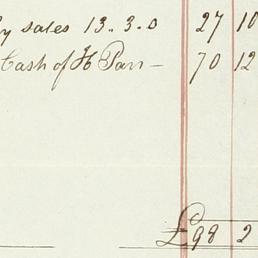 y sales 13.. 3. 0 27 10
Cash of H Parr — 70 12
£98 2